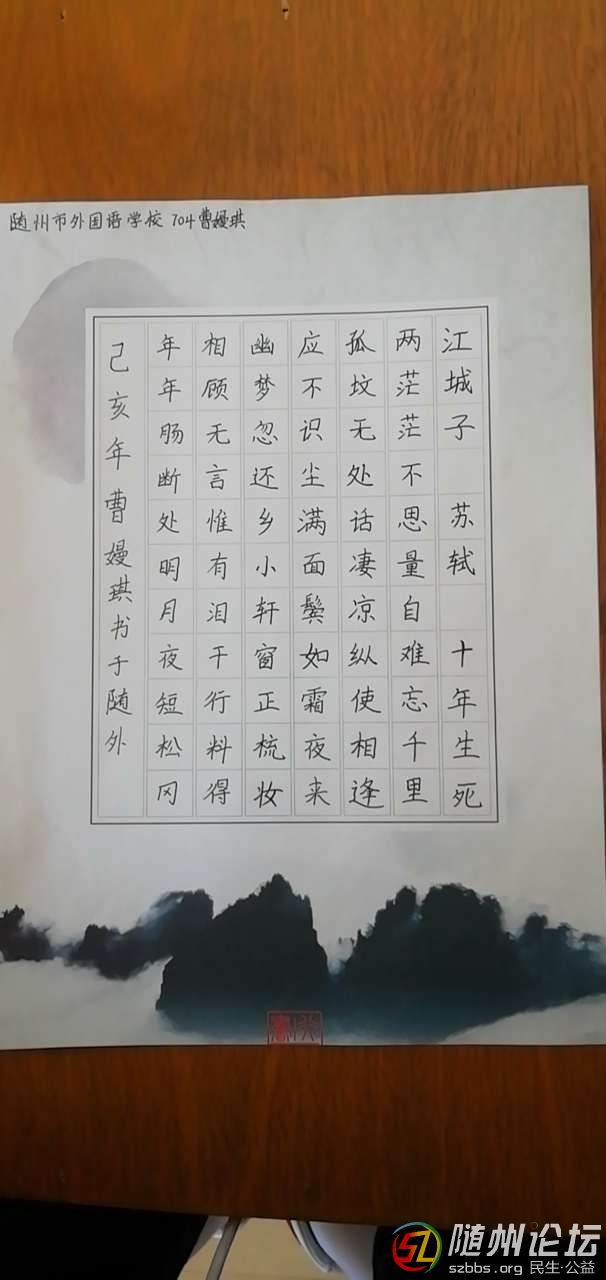 随州市外国语学校 704 曹嫚琪
江城子 苏轼 十年生死
两茫茫不思量自难忘千里
孤坟无处话凄凉纵使相逢
应不识尘满面鬓如霜夜来
幽梦忽还乡小轩窗正梳妆
相顾无言惟有泪千行料得
年年肠断处明月夜短松冈
己亥年曹嫚琪书于随外
随州论坛
szbbs.org 民生·公益